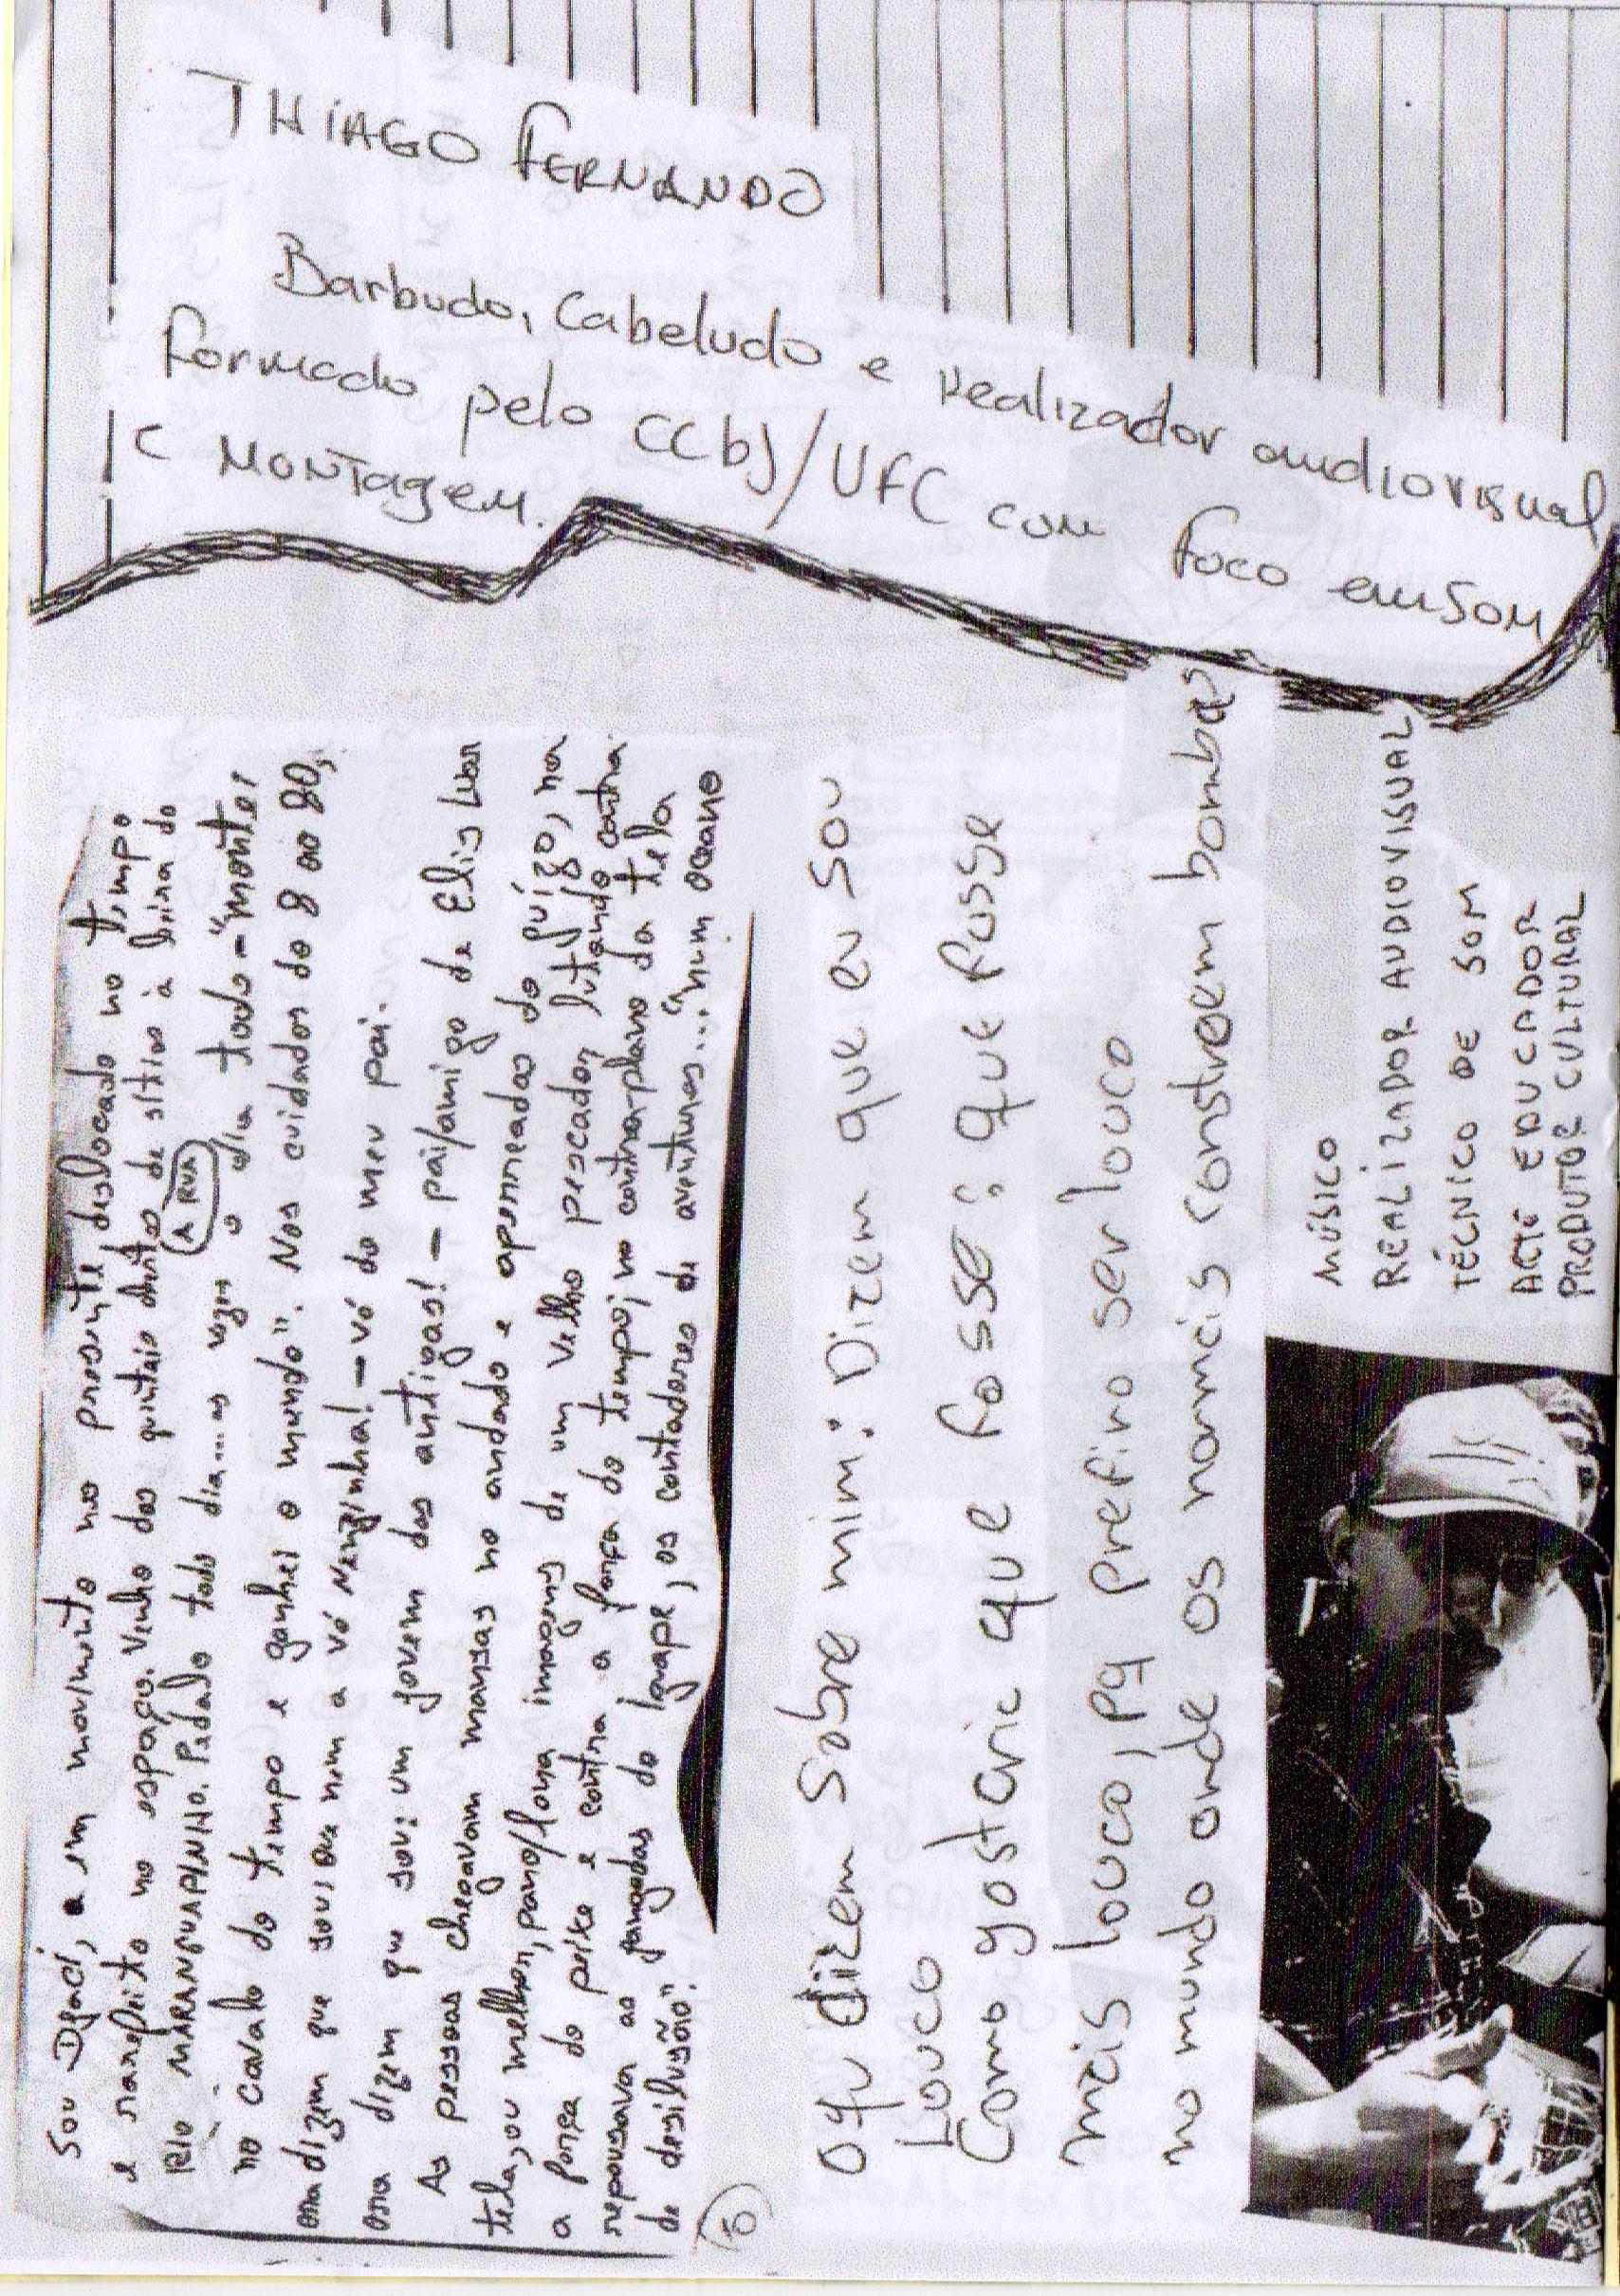 THIAGO FERNANDO
Barbudo, Cabeludo e realizador audiovisual
formado pelo CCbJ/UFC com foco em SOM
E MONTAGEM.
Sou Djaci, a em movimento no presente deslocado no tempo
e rarefeito no espaço. Venho dos quintais dentro de sítios à beira do
RIO MARANGUAPINHO. Pedalo todo dia... as vezes o dia todo - "montei
(A RUA)
no cavalo do tempo e ganhei o mundo". Nos cuidados do 8 ao 80,
ora dizem que sou; que nem a vó Nenzinha! - vó do meu pai.
ora dizem que sou: um jovem das antigas! - pai/amigo de Elis Luar
As pessoas chegavam mansas no andado e aperreadas do juízo, na
tela, ou melhor, pano/lona imagens de um velho pescador lutando contra
a força do peixe e contra a força do tempo; no contra-plano da tela
repousava as jangadas do Iguape, os contadores de aventuras... "num oceano
de desilusão".
O qu dizem sobre mim: Dizem que eu sou
Louco
Como gostaria que fosse: que fosse
mais louco, pq prefiro ser louco
no mundo onde os normais constroem bombas
MÚSICO
REALIZADOR AUDIOVISUAL
TÉCNICO DE SOM
ARTE EDUCADOR
PRODUTOR CULTURAL